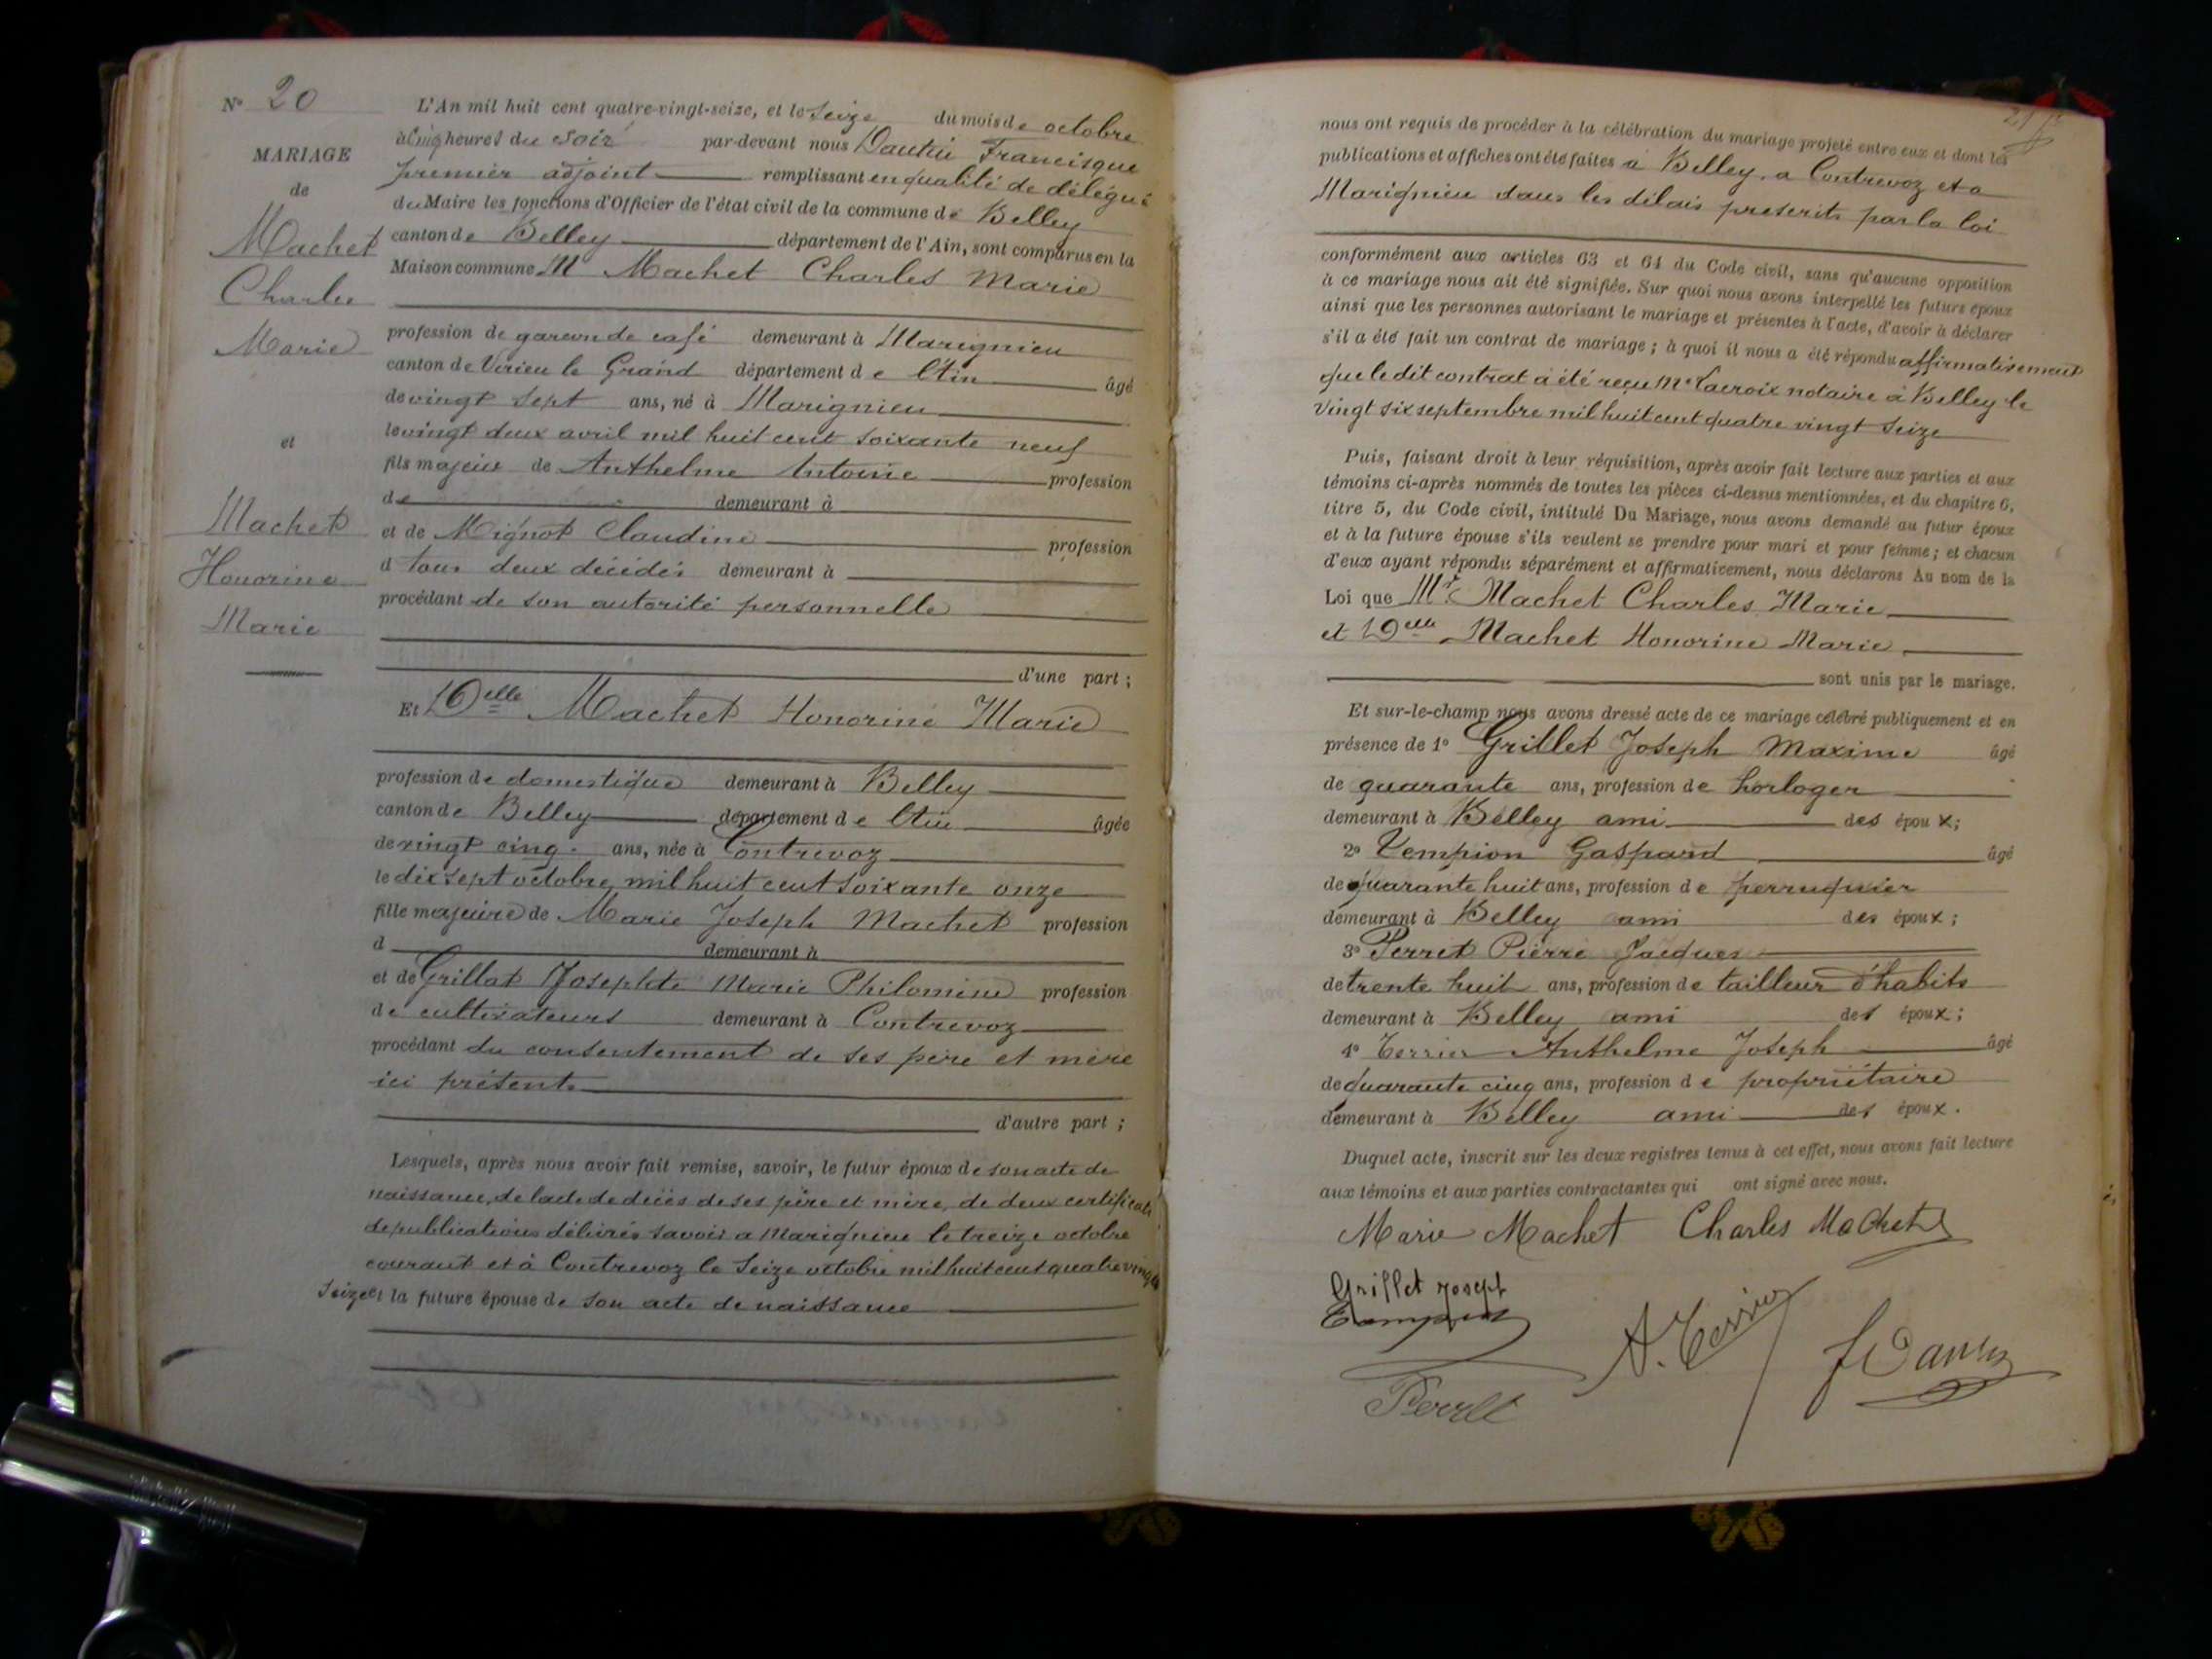 N° 20
MARIAGE
de
Machet
Charles
Marie
et
Machet
Honorine
Marie
L'An mil huit cent quatre-vingt-seize, et le seize du mois de octobre
à cinq heures du soir par-devant nous Francisque
premier adjoint remplissant en qualité de délégué
du Maire les fonctions d'Officier de l'état civil de la commune de Belley
canton de Belley département de l'Ain, sont comparus en la
Maison commune M Machet Charles Marie
profession de garçon de café demeurant à Marignieu
canton de Virieu le Grand département de l'Ain âgé
de vingt sept ans, né à Marignieu
le vingt deux avril mil huit cent soixante neuf
fils majeur de Anthelme Antoine profession
de demeurant à
et de Mignot Claudine profession
d tous deux décédés demeurant à
procédant de son autorité personnelle
d'une part ;
Et Delle Machet Honorine Marie
profession de domestique demeurant à Belley
canton de Belley département de l'Ain âgée
de vingt cinq ans, née à Contrevoz
le dix sept octobre mil huit cent soixante onze
fille majeure de Marie Joseph Machet profession
d demeurant à
et de Grillat Josephte Marie Philomine profession
de cultivateurs demeurant à Contrevoz
procédant du consentement de ses père et mère
ici présents
d'autre part ;
Lesquels, après nous avoir fait remise, savoir, le futur époux de son acte de
naissance, de l'acte de décès de ses père et mère, de deux certificats
de publications délivrés savoir a Marignieu le treize octobre
courant et à Contrevoz le seize octobre mil huit cent quatre vingt
seize et la future épouse de son acte de naissance
nous ont requis de procéder à la célébration du mariage projeté entre eux et dont les
publications et affiches ont été faites à Belley, a Contrevoz et a
Marignieu dans les délais prescrits par la loi
conformément aux articles 63 et 64 du Code civil, sans qu'aucune opposition
à ce mariage nous ait été signifiée. Sur quoi nous avons interpellé les futurs époux
ainsi que les personnes autorisant le mariage et présentes à l'acte, d'avoir à déclarer
s'il a été fait un contrat de mariage ; à quoi il nous a été répondu affirmativement
que le dit contrat a été reçu Me Lacroix notaire à Belley le
vingt six septembre mil huit cent quatre vingt seize
Puis, faisant droit à leur réquisition, après avoir fait lecture aux parties et aux
témoins ci-après nommés de toutes les pièces ci-dessus mentionnées, et du chapitre 6,
titre 5, du Code civil, intitulé Du Mariage, nous avons demandé au futur époux
et à la future épouse s'ils veulent se prendre pour mari et pour femme ; et chacun
d'eux ayant répondu séparément et affirmativement, nous déclarons Au nom de la
Loi que Mr Machet Charles Marie
et Delle Machet Honorine Marie
sont unis par le mariage.
Et sur-le-champ nous avons dressé acte de ce mariage célébré publiquement et en
présence de 1° Grillet Joseph Maxime âgé
de quarante ans, profession de horloger
demeurant à Belley ami des époux;
2° Tempion Gaspard âgé
de quarante huit ans, profession de perruquier
demeurant à Belley ami des époux ;
3° Perret Pierre Jacques
de trente huit ans, profession de tailleur d'habits
demeurant à Belley ami des époux ;
4° Terrier Anthelme Joseph âgé
de quarante cinq ans, profession de propriétaire
demeurant à Belley ami des époux.
Duquel acte, inscrit sur les deux registres tenus à cet effet, nous avons fait lecture
aux témoins et aux parties contractantes qui ont signé avec nous.
Marie Machet Charles Machet
Grillet Joseph
A. Terrier
Perret